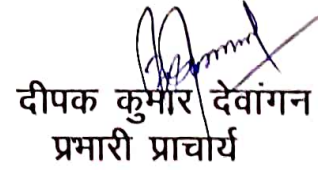 दीपक कुमार देवांगन
प्रभारी प्राचार्य